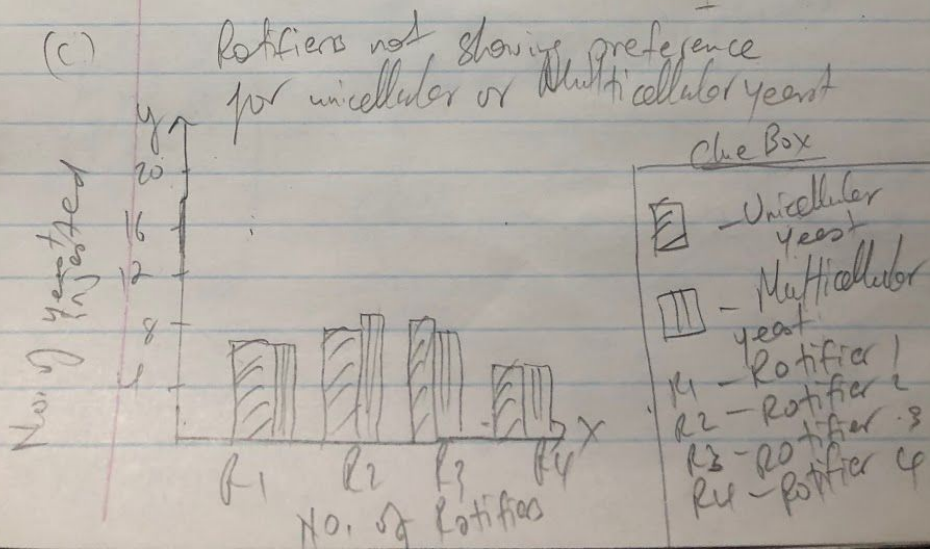 (C) Rotifiers not showing preference
for unicellular or Multicellular yeast
y
20
16
12
8
4
No. of yeast ingested
R1 R2 R3 R4 X
No. of Rotifiers
Clue Box
- Unicellular
yeast
- Multicellular
yeast
R1 - Rotifier 1
R2 - Rotifier 2
R3 - Rotifier 3
R4 - Rotifier 4